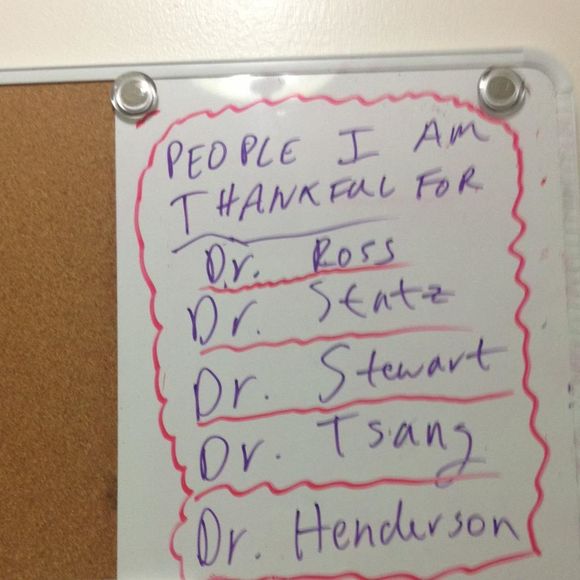 PEOPLE I AM
THANKFUL FOR
Dr. Ross
Dr. Statz
Dr. Stewart
Dr. Tsang
Dr. Henderson